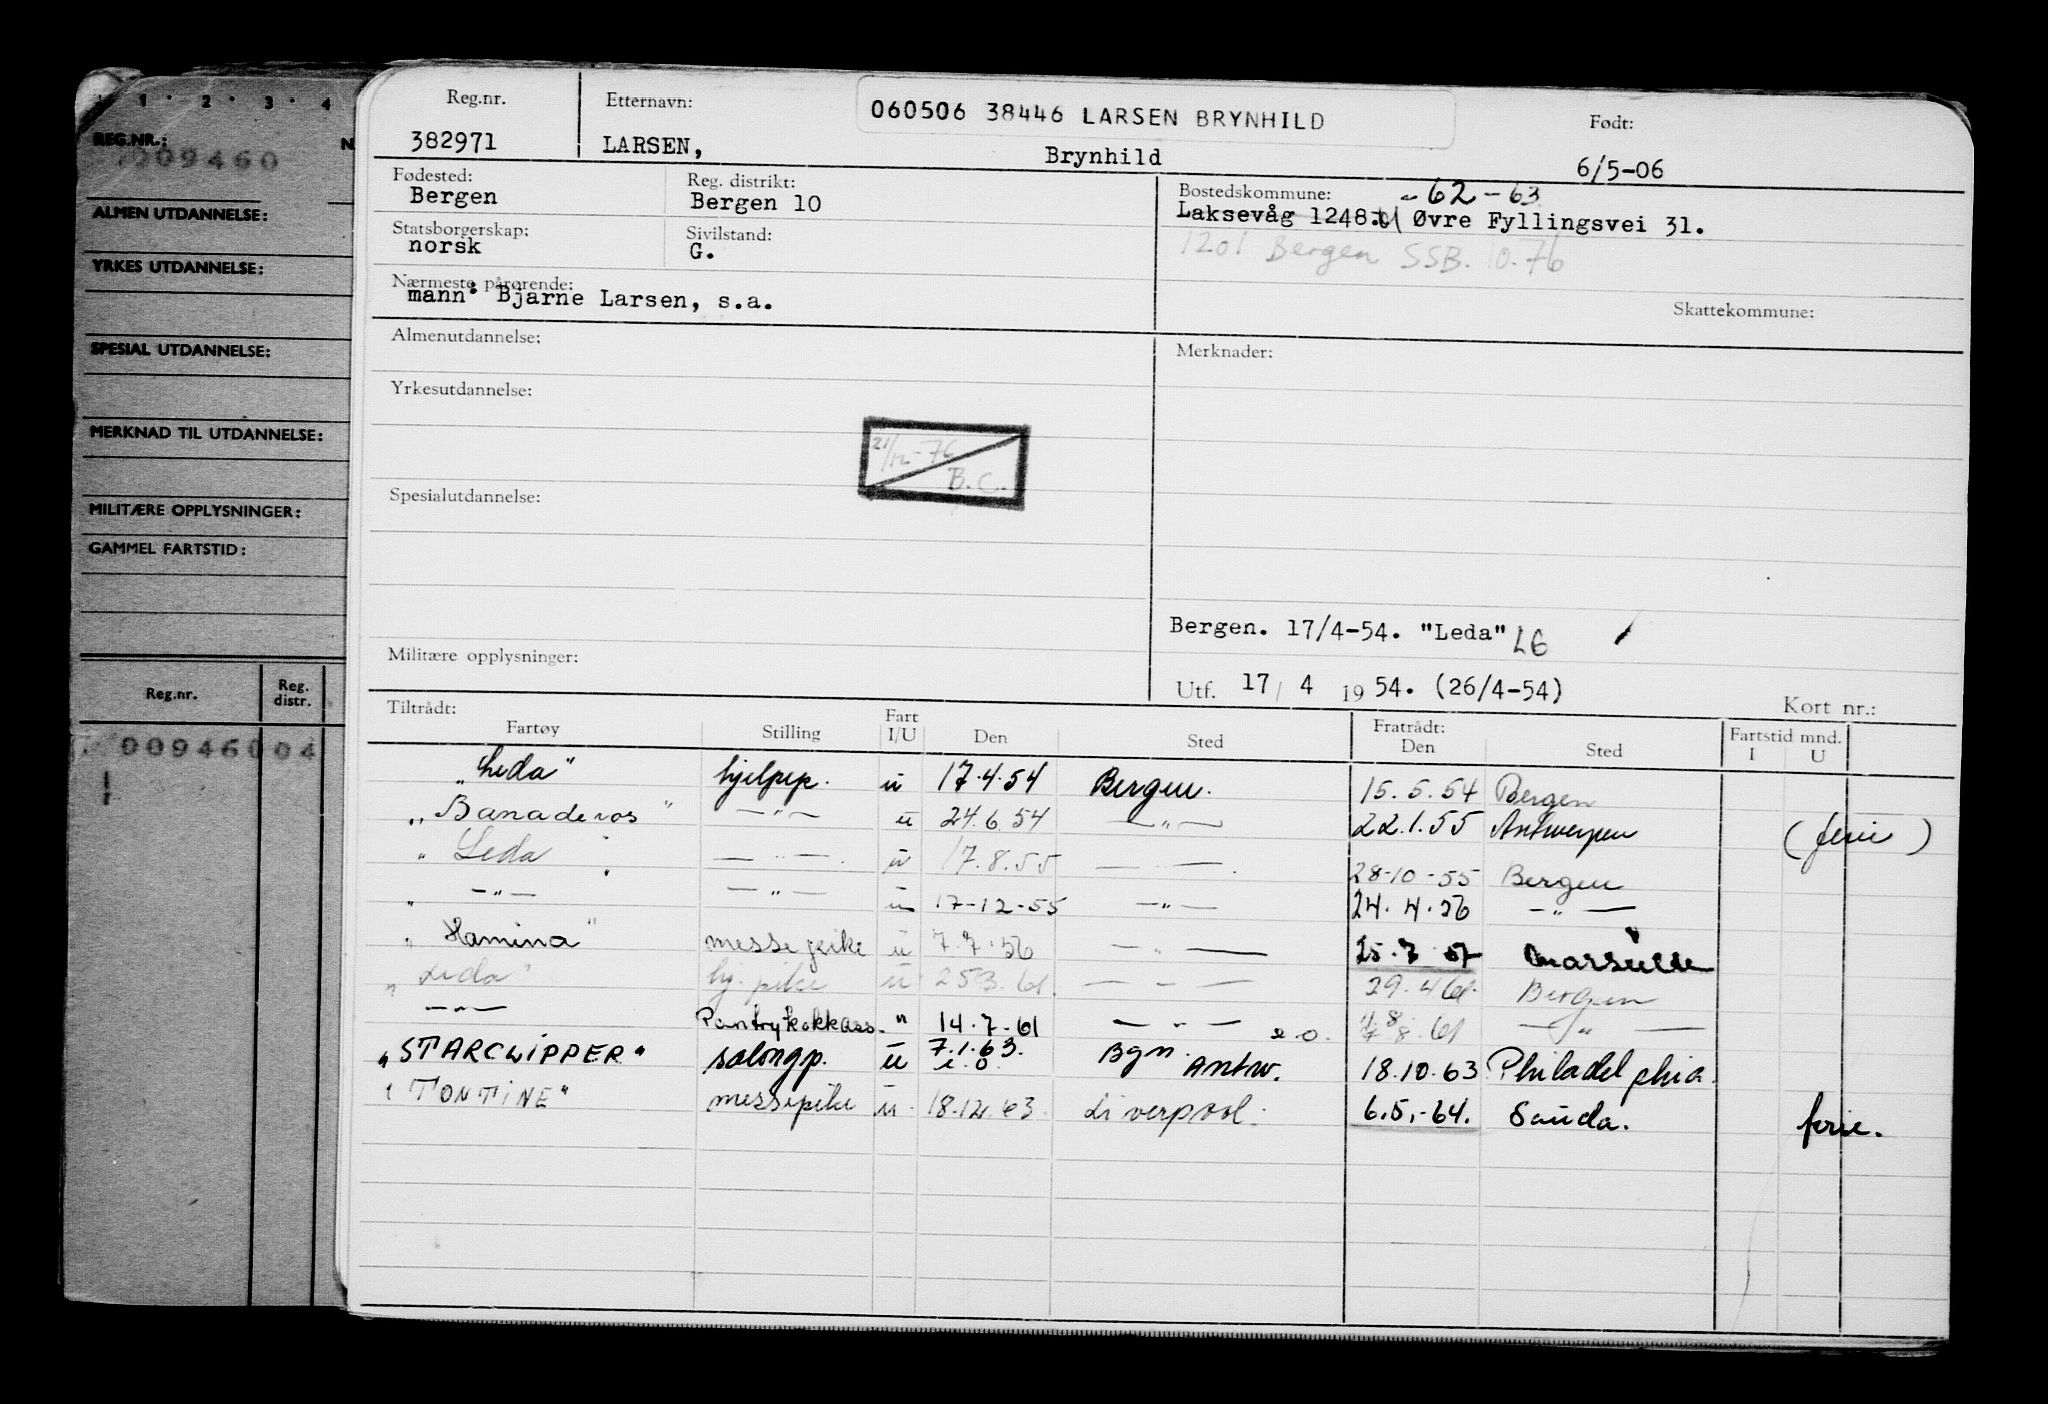 1 · 2 · 3 · 4
REG.NR.:
009460
ALMEN UTDANNELSE:
YRKES UTDANNELSE:
SPESIAL UTDANNELSE:
MERKNAD TIL UTDANNELSE:
MILITÆRE OPPLYSNINGER:
GAMMEL FARTSTID:
Reg.nr. Reg. distr.
009460 04
Reg.nr. Etternavn: 060506 38446 LARSEN BRYNHILD Født:
382971 LARSEN, Brynhild 6/5-06
Fødested: Reg. distrikt: Bostedskommune: - 62 - 63
Bergen Bergen 10 Laksevåg 1248. Øvre Fyllingsvei 31.
Statsborgerskap: Sivilstand: 1201 Bergen SSB. 10.76
norsk G.
Nærmeste pårørende: Skattekommune:
mann: Bjarne Larsen, s.a.
Almenutdannelse: Merknader:
Yrkesutdannelse:
21/12-76
B.C.
Spesialutdannelse:
Bergen. 17/4-54. "Leda" LG
Militære opplysninger:
Utf. 17/ 4 19 54. (26/4-54)
Tiltrådt: Kort nr.:
Fartøy Stilling Fart I/U Den Sted Fratrådt: Den Sted Fartstid mnd. I U
"Leda" hjelpep. u 17.4.54 Bergen. 15.5.54 Bergen
"Banaderos" —"— u 24.6.54 —"— 22.1.55 Antwerpen (ferie)
"Leda" —"— u 17.8.55 —"— 28-10-55 Bergen
" —"— —"— u 17-12-55 —"— 24.4.56 —"—
"Hamina" messepike u 7.7.56 —"— 25.7.57 Marseille
"Leda" hj. pike u 25.3.61. —"— 29.4.61. Bergen
—"— Pantrykokkass. " 14.7.61 —"— 8.61 —"—
"STARCLIPPER" salongp. u 7.1.63. e.o. Bgn. e.o. Antw. 18.10.63 Philadelphia.
"TONTINE" messepike u. 18.12.63. Liverpool. 6.5.-64. Sauda. ferie.